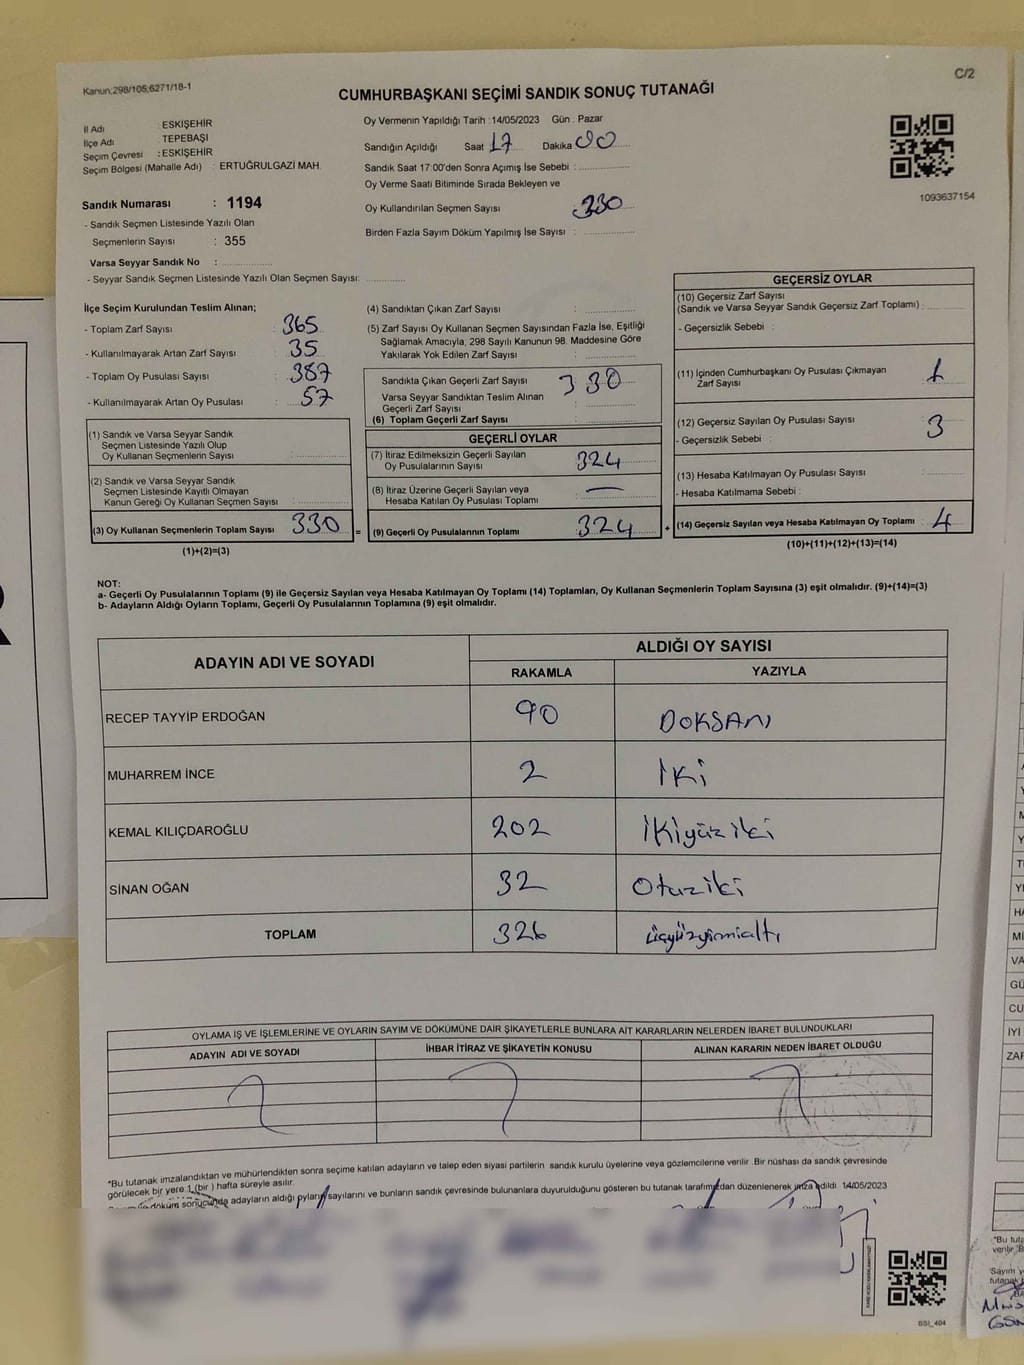 Kanun;298/105;6271/18-1
C/2
CUMHURBAŞKANI SEÇİMİ SANDIK SONUÇ TUTANAĞI
İl Adı : ESKİŞEHİR
İlçe Adı : TEPEBAŞI
Seçim Çevresi : ESKİŞEHİR
Seçim Bölgesi (Mahalle Adı) : ERTUĞRULGAZİ MAH.
Sandık Numarası : 1194
- Sandık Seçmen Listesinde Yazılı Olan
Seçmenlerin Sayısı : 355
Varsa Seyyar Sandık No :
- Seyyar Sandık Seçmen Listesinde Yazılı Olan Seçmen Sayısı:
Oy Vermenin Yapıldığı Tarih :14/05/2023 Gün : Pazar
Sandığın Açıldığı Saat 17 Dakika 00
Sandık Saat 17:00'den Sonra Açılmış İse Sebebi :
Oy Verme Saati Bitiminde Sırada Bekleyen ve
Oy Kullandırılan Seçmen Sayısı : 330
Birden Fazla Sayım Döküm Yapılmış İse Sayısı :
1093637154
İlçe Seçim Kurulundan Teslim Alınan;
- Toplam Zarf Sayısı : 365
- Kullanılmayarak Artan Zarf Sayısı : 35
- Toplam Oy Pusulası Sayısı : 387
- Kullanılmayarak Artan Oy Pusulası : 57
(1) Sandık ve Varsa Seyyar Sandık
Seçmen Listesinde Yazılı Olup
Oy Kullanan Seçmenlerin Sayısı :
(2) Sandık ve Varsa Seyyar Sandık
Seçmen Listesinde Kayıtlı Olmayan
Kanun Gereği Oy Kullanan Seçmen Sayısı :
(3) Oy Kullanan Seçmenlerin Toplam Sayısı : 330
(1)+(2)=(3)
(4) Sandıktan Çıkan Zarf Sayısı :
(5) Zarf Sayısı Oy Kullanan Seçmen Sayısından Fazla İse, Eşitliği
Sağlamak Amacıyla, 298 Sayılı Kanunun 98. Maddesine Göre
Yakılarak Yok Edilen Zarf Sayısı :
Sandıkta Çıkan Geçerli Zarf Sayısı : 330
Varsa Seyyar Sandıktan Teslim Alınan
Geçerli Zarf Sayısı :
(6) Toplam Geçerli Zarf Sayısı :
GEÇERLİ OYLAR
(7) İtiraz Edilmeksizin Geçerli Sayılan
Oy Pusulalarının Sayısı : 324
(8) İtiraz Üzerine Geçerli Sayılan veya
Hesaba Katılan Oy Pusulası Toplamı : —
= (9) Geçerli Oy Pusulalarının Toplamı : 324
GEÇERSİZ OYLAR
(10) Geçersiz Zarf Sayısı
(Sandık ve Varsa Seyyar Sandık Geçersiz Zarf Toplamı) :
- Geçersizlik Sebebi :
(11) İçinden Cumhurbaşkanı Oy Pusulası Çıkmayan
Zarf Sayısı : 1
(12) Geçersiz Sayılan Oy Pusulası Sayısı : 3
- Geçersizlik Sebebi :
(13) Hesaba Katılmayan Oy Pusulası Sayısı :
- Hesaba Katılmama Sebebi :
+ (14) Geçersiz Sayılan veya Hesaba Katılmayan Oy Toplamı : 4
(10)+(11)+(12)+(13)=(14)
NOT:
a- Geçerli Oy Pusulalarının Toplamı (9) ile Geçersiz Sayılan veya Hesaba Katılmayan Oy Toplamı (14) Toplamları, Oy Kullanan Seçmenlerin Toplam Sayısına (3) eşit olmalıdır. (9)+(14)=(3)
b- Adayların Aldığı Oyların Toplamı, Geçerli Oy Pusulalarının Toplamına (9) eşit olmalıdır.
ADAYIN ADI VE SOYADI
ALDIĞI OY SAYISI
RAKAMLA YAZIYLA
RECEP TAYYİP ERDOĞAN 90 DOKSAN
MUHARREM İNCE 2 İKİ
KEMAL KILIÇDAROĞLU 202 İKİyüziki
SİNAN OĞAN 32 Otuziki
TOPLAM 326 üçyüzyirmialtı
OYLAMA İŞ VE İŞLEMLERİNE VE OYLARIN SAYIM VE DÖKÜMÜNE DAİR ŞİKAYETLERLE BUNLARA AİT KARARLARIN NELERDEN İBARET BULUNDUKLARI
ADAYIN ADI VE SOYADI İHBAR İTİRAZ VE ŞİKAYETİN KONUSU ALINAN KARARIN NEDEN İBARET OLDUĞU
*Bu tutanak imzalandıktan ve mühürlendikten sonra seçime katılan adayların ve talep eden siyasi partilerin sandık kurulu üyelerine veya gözlemcilerine verilir .Bir nüshası da sandık çevresinde
görülecek bir yere 1 (bir ) hafta süreyle asılır.
döküm sonucunda adayların aldığı oyların sayılarını ve bunların sandık çevresinde bulunanlara duyurulduğunu gösteren bu tutanak tarafımızdan düzenlenerek imza edildi 14/05/2023